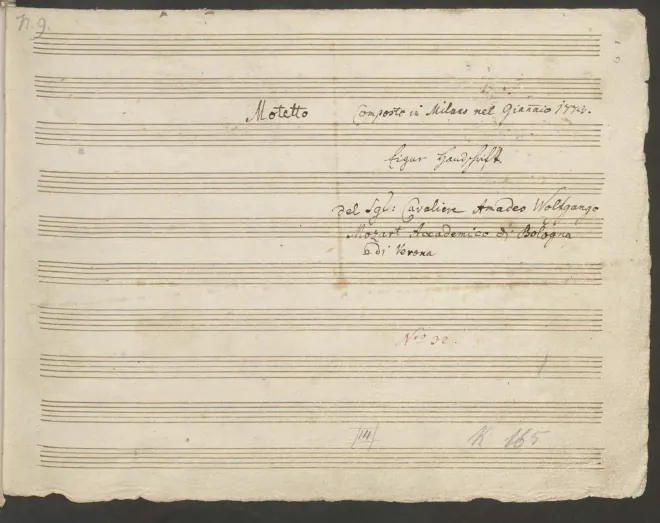 N. 9.
Motetto Composto in Milano nel Giannaio 1773.
Eigne Handschrift
Del Sgl: Cavaliere Amadeo Wolfgango
Mozart Accademico di Bologna
e di Verona
Nro 32.
14
K 165